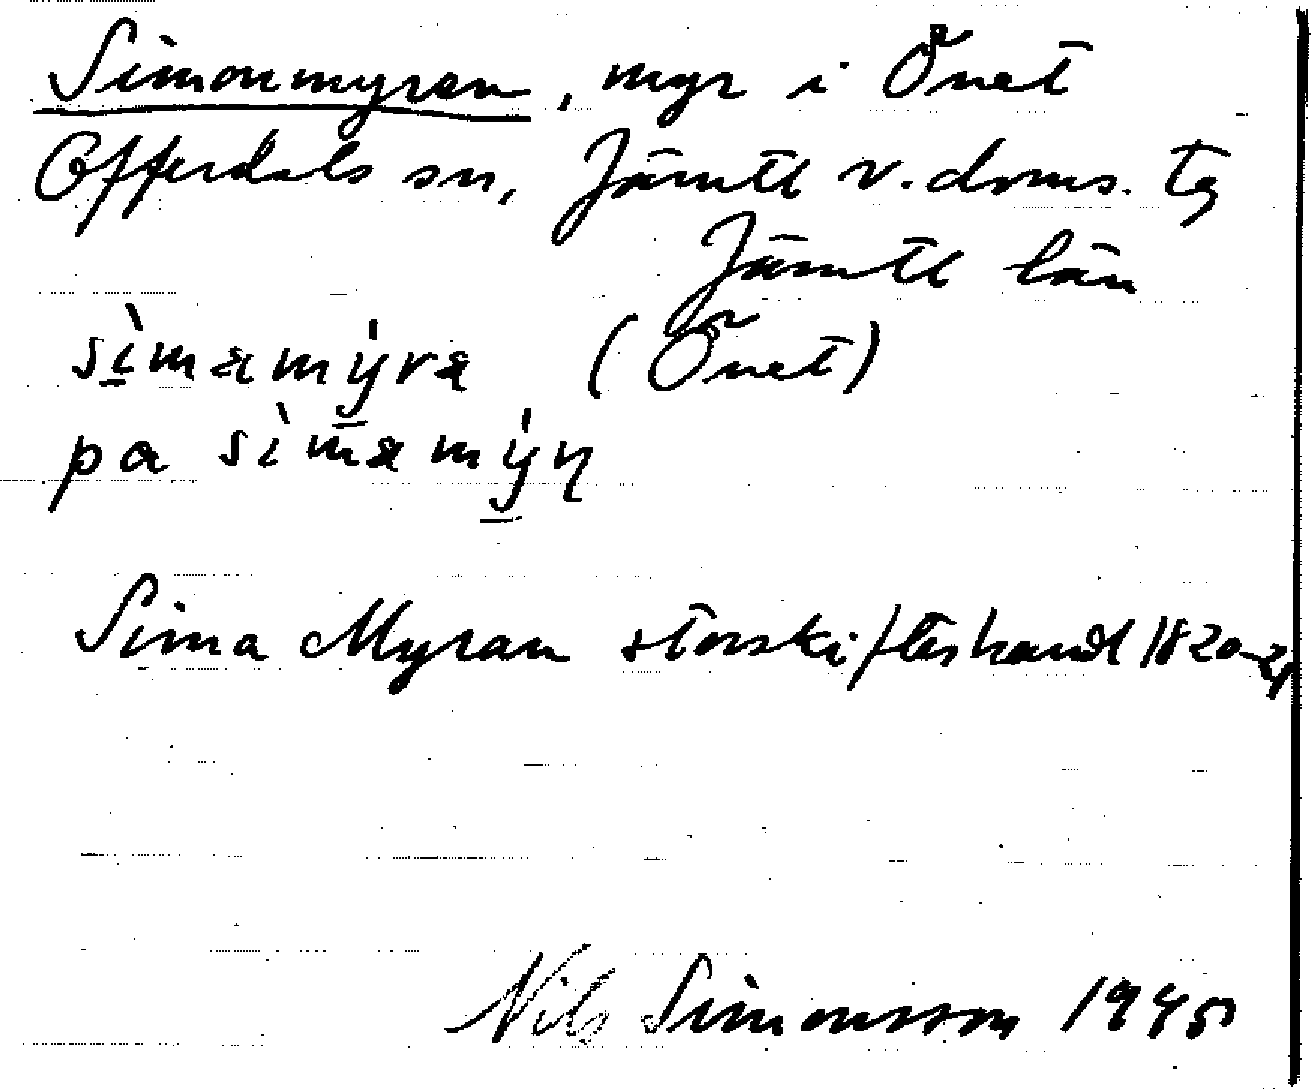 Simonmyren, myr i Önet
Offerdals sn, Jämtl v. doms. tg
Jämtl län
sìmamýra (Önet)
pa sìmamýn
Sima Myran storskifteshandl 1820-21
Nils Simonsson 1945